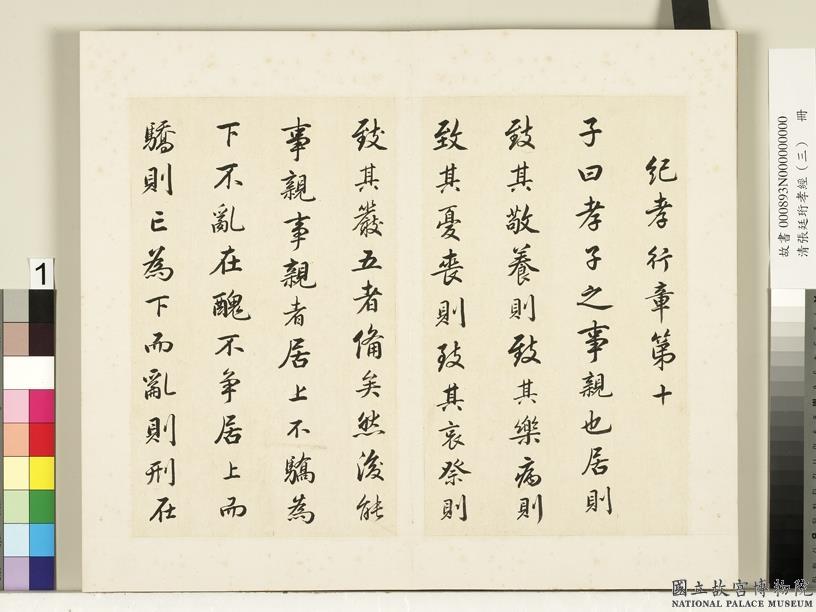 紀孝行章第十
子曰孝子之事親也居則
致其敬養則致其樂病則
致其憂喪則致其哀祭則
致其嚴五者俻矣然後能
事親事親者居上不驕為
下不亂在醜不爭居上而
驕則亡為下而亂則刑在
1
故書000893N000000000
清張廷珩孝經（三） 冊
國立故宮博物院
NATIONAL PALACE MUSEUM